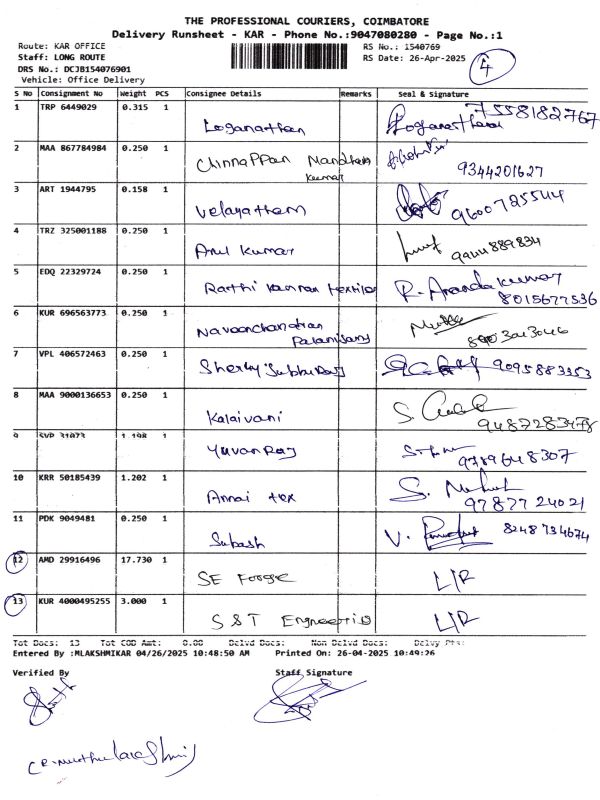 THE PROFESSIONAL COURIERS, COIMBATORE
Delivery Runsheet - KAR - Phone No.:9047080280 - Page No.:1
Route: KAR OFFICE RS No.: 1540769
Staff: LONG ROUTE RS Date: 26-Apr-2025 4
DRS No.: DCJB154076901
Vehicle: Office Delivery
S No Consignment No Weight PCS Consignee Details Remarks Seal & Signature
1 TRP 6449029 0.315 1 Loganathan Loganathan 7558182767
2 MAA 867784984 0.250 1 Chinnappan Manothan Kumar 9344201627
3 ART 1944795 0.158 1 Velayatham
4 TRZ 325001188 0.250 1 Arul Kumar 9944889834
5 EDQ 22329724 0.250 1 Rathi Kannan textiles R. Anandakumar 8015677536
6 KUR 696563773 0.250 1
7 VPL 406572463 0.250 1 9095883353
8 MAA 9000136653 0.250 1 Kalaivani S. 9487283478
9 SVP 31073 1.198 1 Yuvan Raj 9789648307
10 KRR 50185439 1.202 1 Annai tex S. 97877 24021
11 PDK 9049481 0.250 1 Subash V. 8248734674
12 AMD 29916496 17.730 1 SE Forge L/R
13 KUR 4000495255 3.000 1 S&T L/R
Tot Docs: 13 Tot COD Amt: 0.00 Delvd Docs: Non Delvd Docs: Delvy Pts:
Entered By :MLAKSHMIKAR 04/26/2025 10:48:50 AM Printed On: 26-04-2025 10:49:26
Verified By Staff Signature